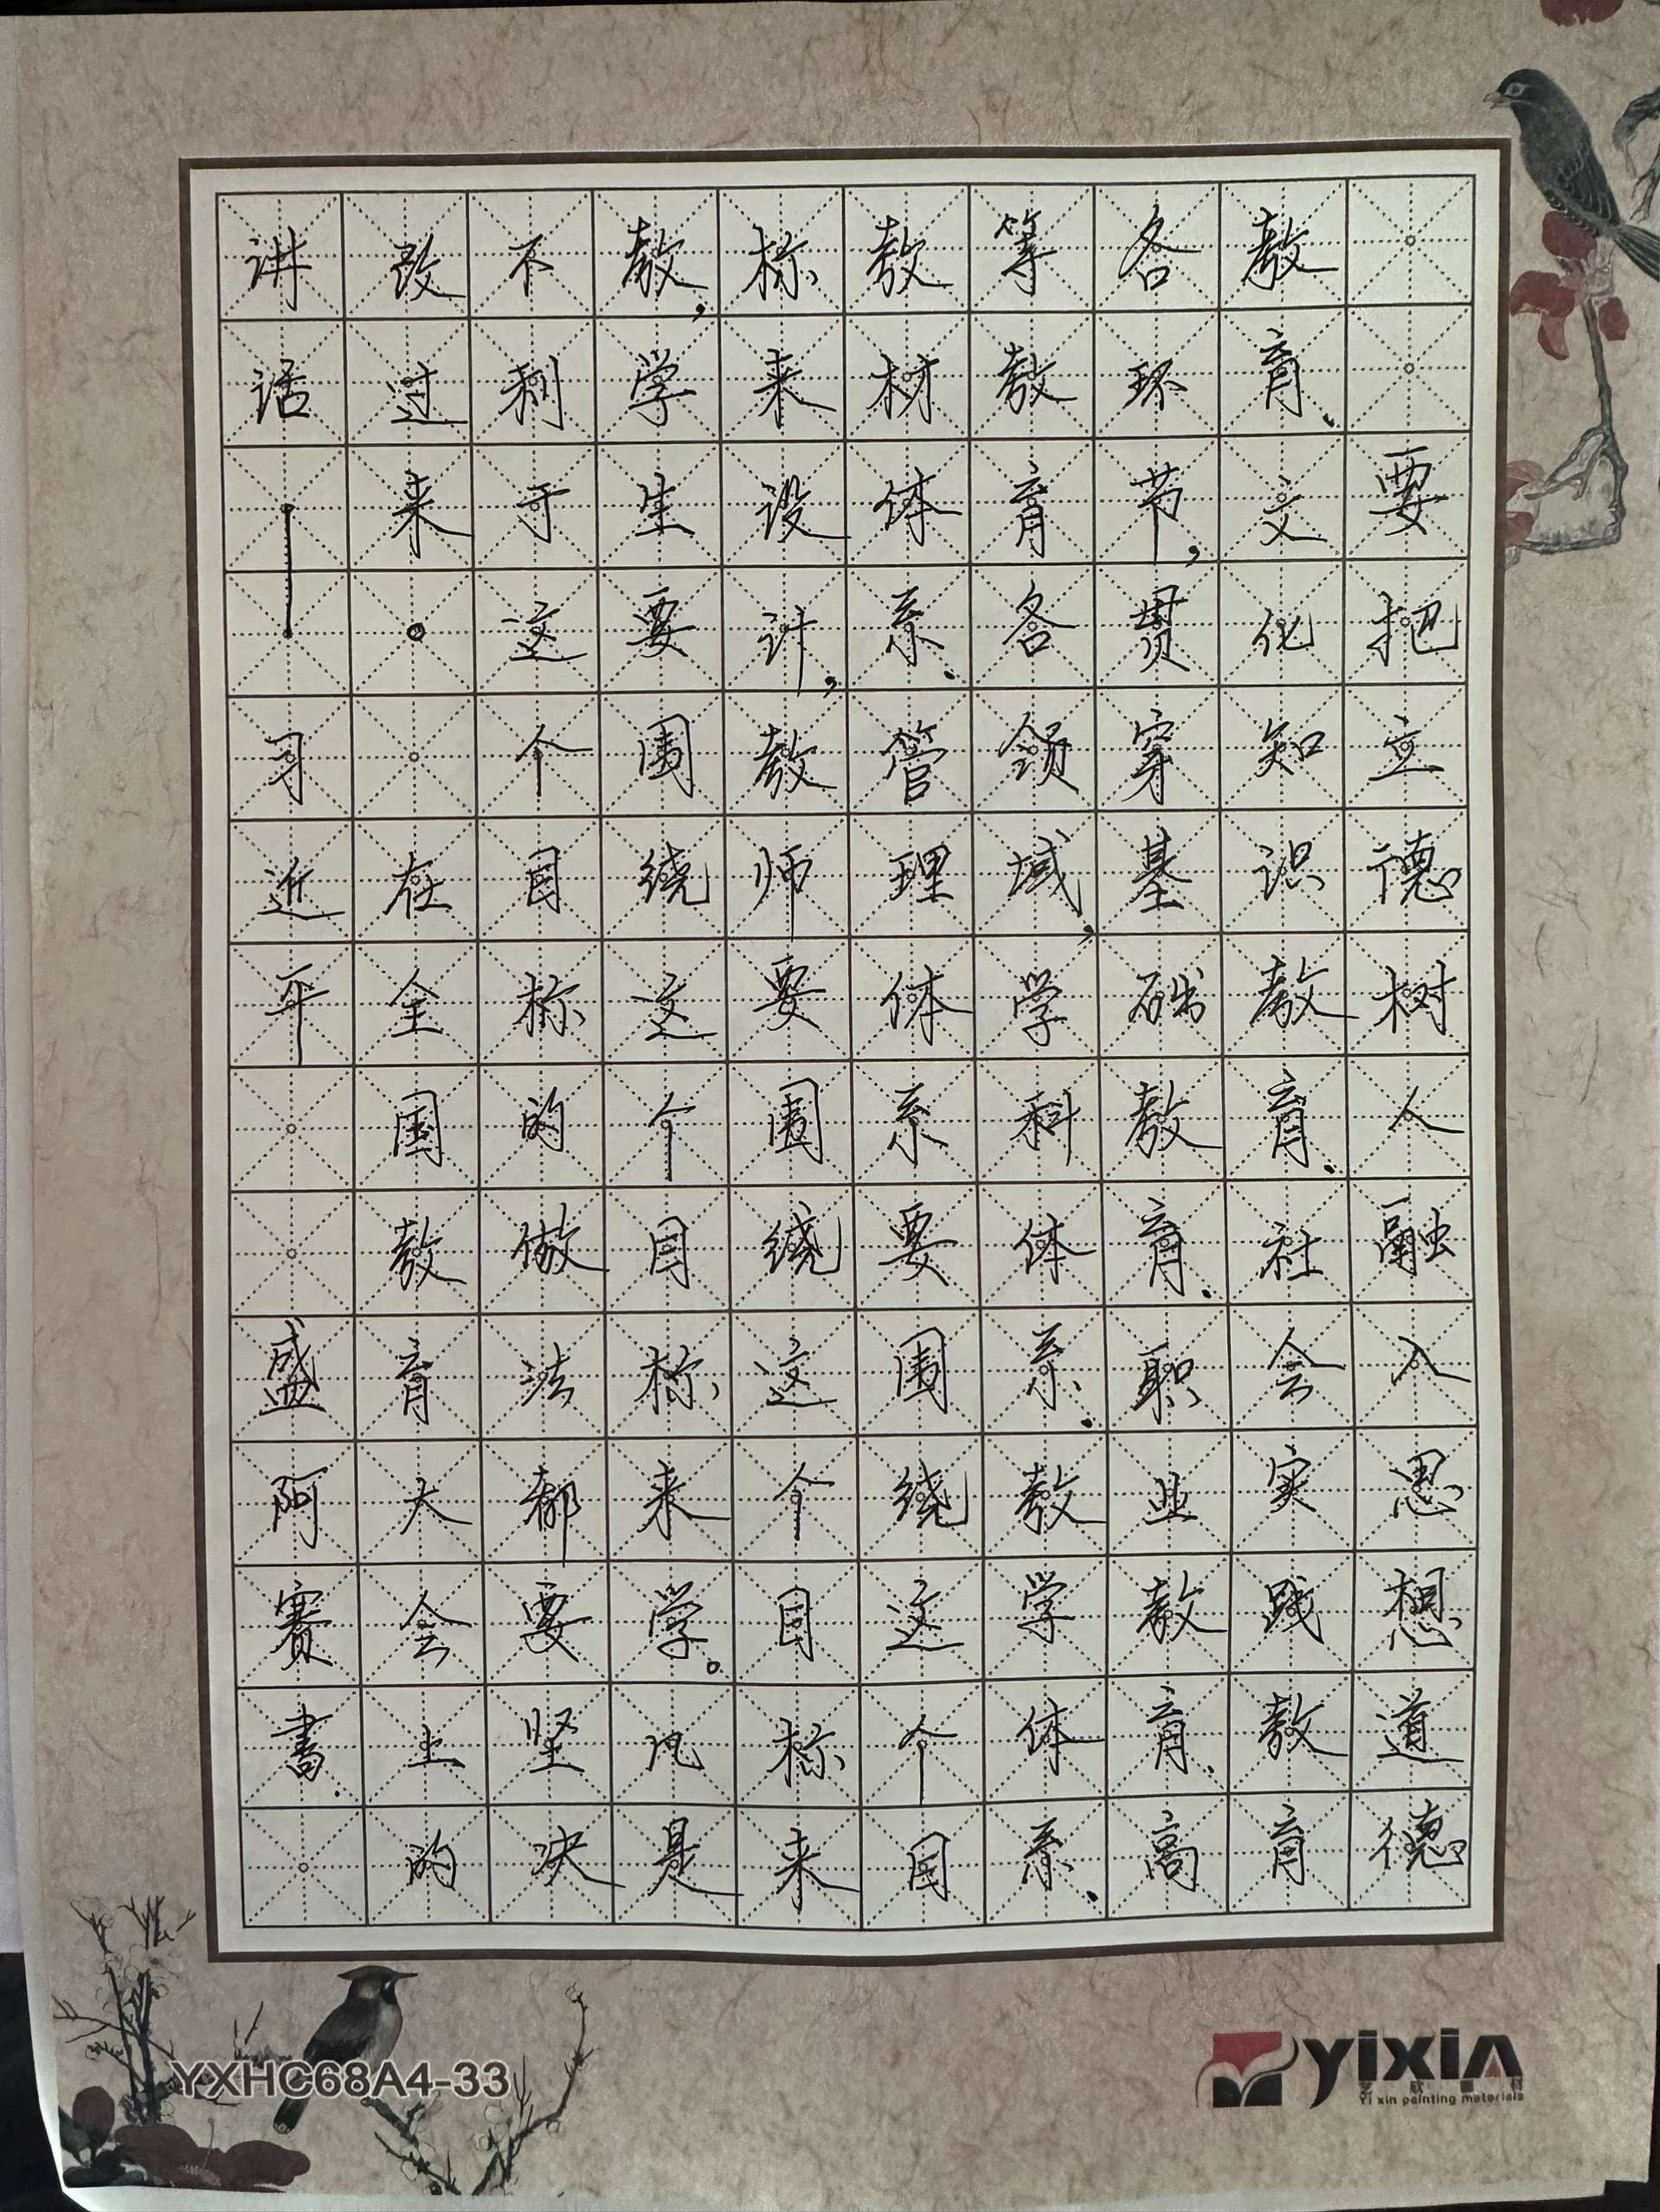 要把立德树人融入思想道德
教育、文化知识教育、社会实践教育
各环节，贯穿基础教育、职业教育、高
等教育各领域，学科体系、教学体系、
教材体系、管理体系要围绕这个目
标来设计，教师要围绕这个目标来
教，学生要围绕这个目标来学。凡是
不利于这个目标的做法都要坚决
改过来。 在全国教育大会上的
讲话——习近平 盛阿赛書.
YXHC68A4-33
yixin
Yi xin painting materials